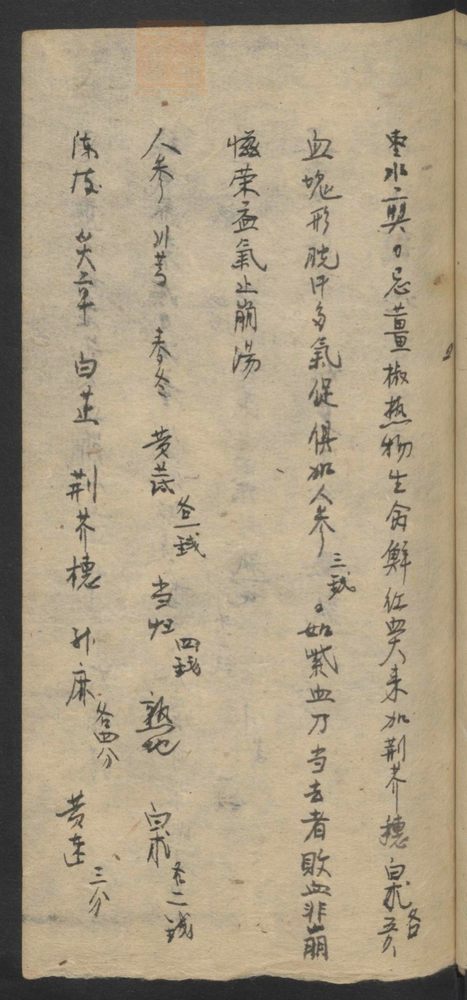 枣水煎。忌薑椒热物生禽鲜红血大来加荆芥穗白术各五分
血塊形脱汗多氣促俱加人参三钱。如紫血乃当去者败血非崩
滋荣益氣止崩湯
人参 川芎 麦冬 黄芪各一钱 当归四钱 熟地 白术各二钱
陳皮 炙草 白芷 荆芥穗 升麻各四分 黄连三分